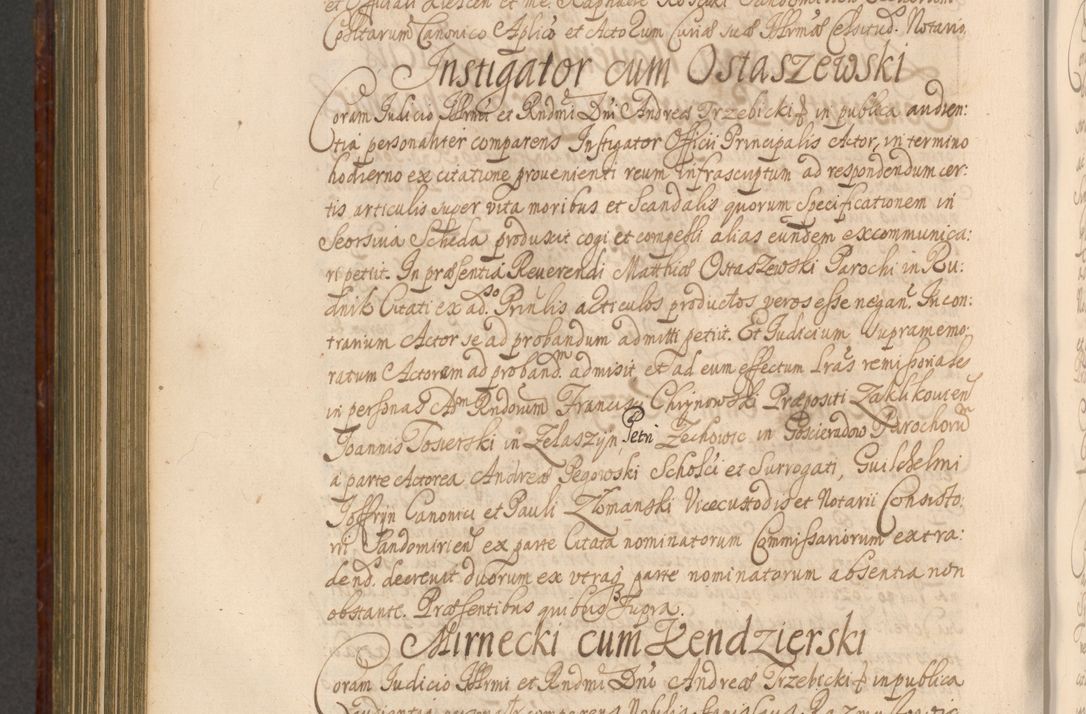 et Officiali Kielcen et me Raphaele
Coltarum Canonico Aplico et Actorum Curiæ suæ Illrmæ Celsitud. Notario,
Instigator cum Ostaszewski
Coram Iudicio Illrmi et Rndmi Dni Andreæ Trzebicki in publica audien:
tia personaliter comparens Instigator Officii Principalis Actor, in termino
hodierno ex citatione provenienti reum infrascriptum ad respondendum cer:
tis articulis super vita moribus et scandalis quorum specificationem in
seorsivia Scheda produxit cogi et compelli alias eundem excommunica:
ri petiit. In præsentia Reverendi Matthiæ Ostaszewski Parochi in Ru:
dnik Citati ex ad.so Prinlis articulos productos veros esse negan. In con:
trarium Actor se ad probandum admitti petiit. Et Iudicium supramemo:
ratum Actorem ad proband.m admisit et ad eum effectum Lras remissoriales
in personas Adm Rndorum Francisci Chrynowski Præpositi Zaklikovien
Joannis Tosierski in Zelaszyn, Petri Zechowic in Goscieradow Parochorum
a parte Actorea Andreæ Pegowski Scholci et Surrogati, Guilhelmi
Joffryn Canonici et Pauli Zlomanski Vicecustodis et Notarii Consisto:
rii Sandomirien ex parte Citata nominatorum Commissariorum extra:
dend. decrevit duorum ex utraq parte nominatorum absentia non
obstante. Præsentibus quibus supra.
Mirnecki cum Kendzierski
Coram Iudicio Illrmi et Rndmi Dni Andreæ Trzebicki in publica